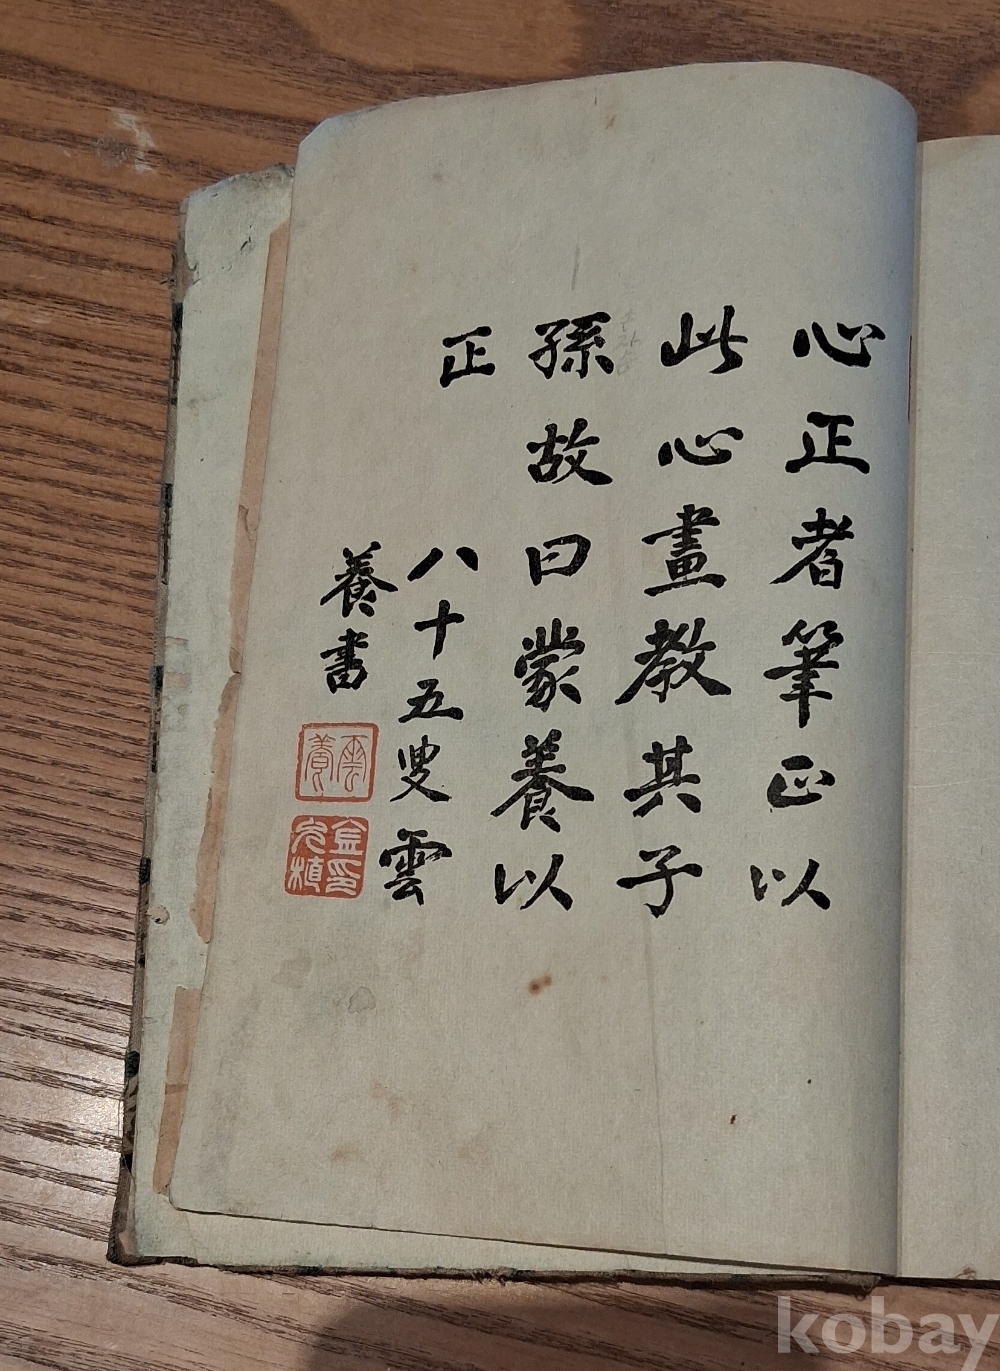 心正者筆正以
此心畫敎其子
孫故曰蒙養以
正
八十五叟雲
養書
雲養
金允植印
kobay